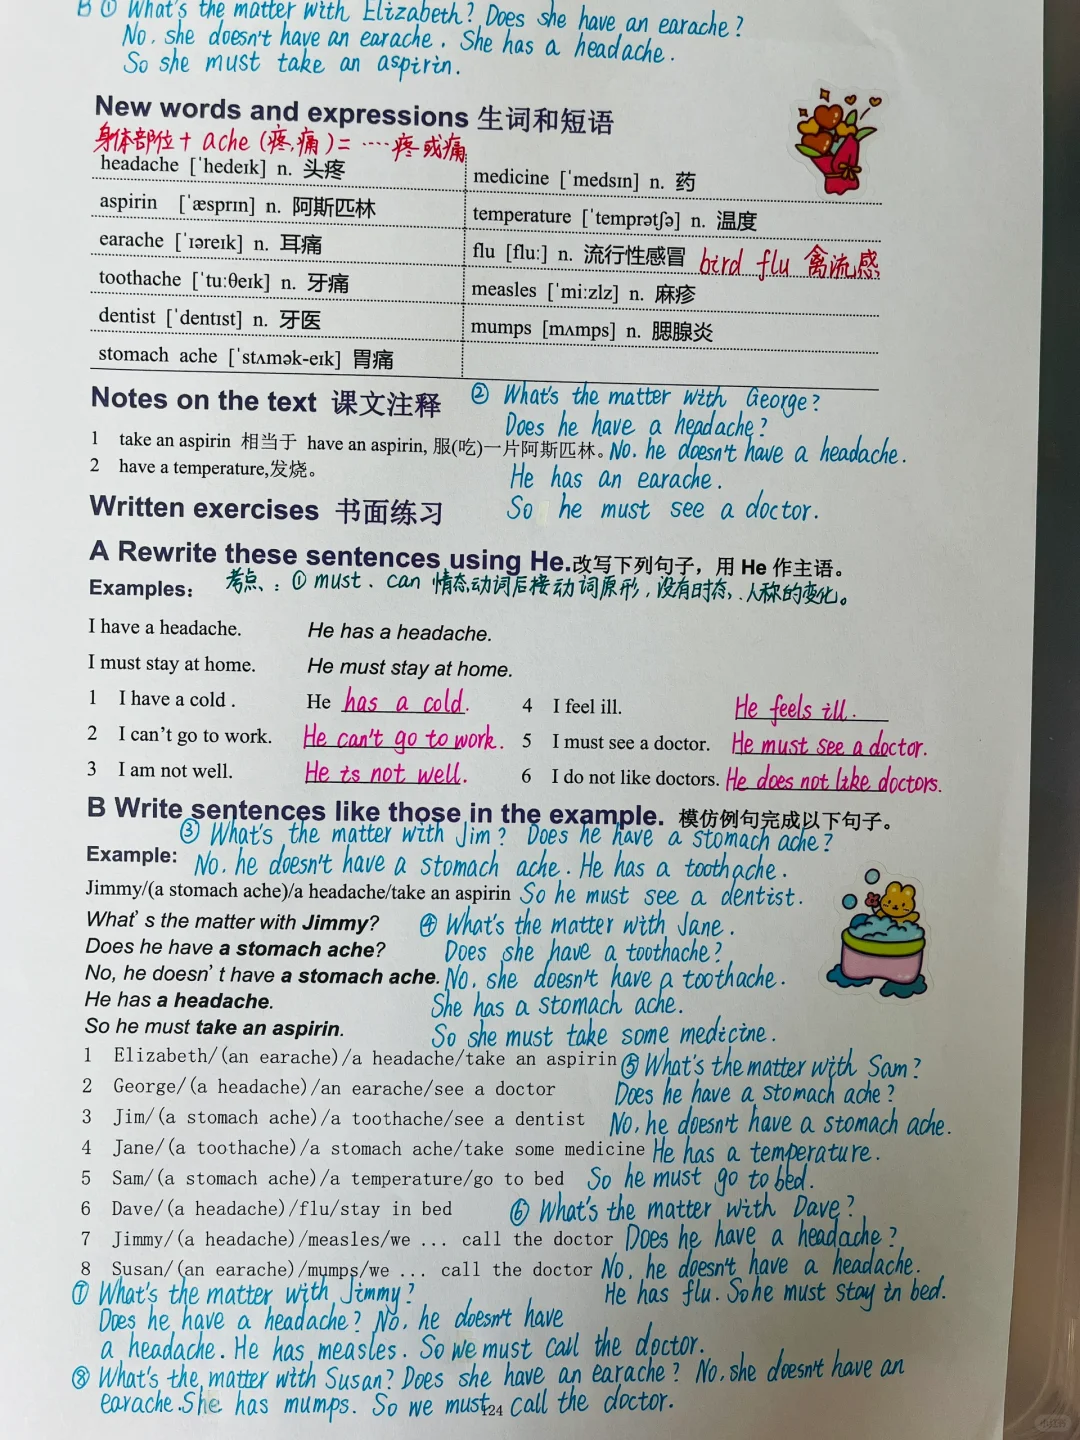 B ① What's the matter with Elizabeth? Does she have an earache?
No, she doesn't have an earache. She has a headache.
So she must take an aspirin.
New words and expressions 生词和短语
身体部位 + ache (疼,痛) = ····疼或痛
headache [ˈhedeɪk] n. 头疼
aspirin [ˈæsprɪn] n. 阿斯匹林
earache [ˈɪəreɪk] n. 耳痛
toothache [ˈtuːθeɪk] n. 牙痛
dentist [ˈdentɪst] n. 牙医
stomach ache [ˈstʌmək-eɪk] 胃痛
medicine [ˈmedsɪn] n. 药
temperature [ˈtemprətʃə] n. 温度
flu [fluː] n. 流行性感冒 bird flu 禽流感
measles [ˈmiːzlz] n. 麻疹
mumps [mʌmps] n. 腮腺炎
Notes on the text 课文注释
1 take an aspirin 相当于 have an aspirin, 服(吃)一片阿斯匹林。
2 have a temperature,发烧。
② What's the matter with George?
Does he have a headache?
No, he doesn't have a headache.
He has an earache.
So he must see a doctor.
Written exercises 书面练习
A Rewrite these sentences using He.改写下列句子，用 He 作主语。
考点：① must、can 情态动词后接动词原形，没有时态、人称的变化。
Examples:
I have a headache. He has a headache.
I must stay at home. He must stay at home.
1 I have a cold . He has a cold.
2 I can't go to work. He can't go to work.
3 I am not well. He is not well.
4 I feel ill. He feels ill.
5 I must see a doctor. He must see a doctor.
6 I do not like doctors. He does not like doctors.
B Write sentences like those in the example. 模仿例句完成以下句子。
③ What's the matter with Jim? Does he have a stomach ache?
No, he doesn't have a stomach ache. He has a toothache.
So he must see a dentist.
Example:
Jimmy/(a stomach ache)/a headache/take an aspirin
What's the matter with Jimmy?
Does he have a stomach ache?
No, he doesn't have a stomach ache.
He has a headache.
So he must take an aspirin.
④ What's the matter with Jane.
Does she have a toothache?
No, she doesn't have a toothache.
She has a stomach ache.
So she must take some medicine.
1 Elizabeth/(an earache)/a headache/take an aspirin
2 George/(a headache)/an earache/see a doctor
3 Jim/(a stomach ache)/a toothache/see a dentist
4 Jane/(a toothache)/a stomach ache/take some medicine
5 Sam/(a stomach ache)/a temperature/go to bed
6 Dave/(a headache)/flu/stay in bed
7 Jimmy/(a headache)/measles/we ... call the doctor
8 Susan/(an earache)/mumps/we ... call the doctor
⑤ What's the matter with Sam?
Does he have a stomach ache?
No, he doesn't have a stomach ache.
He has a temperature.
So he must go to bed.
⑥ What's the matter with Dave?
Does he have a headache?
No, he doesn't have a headache.
He has flu. So he must stay in bed.
⑦ What's the matter with Jimmy?
Does he have a headache? No, he doesn't have
a headache. He has measles. So we must call the doctor.
⑧ What's the matter with Susan? Does she have an earache? No, she doesn't have an
earache. She has mumps. So we must call the doctor.
124